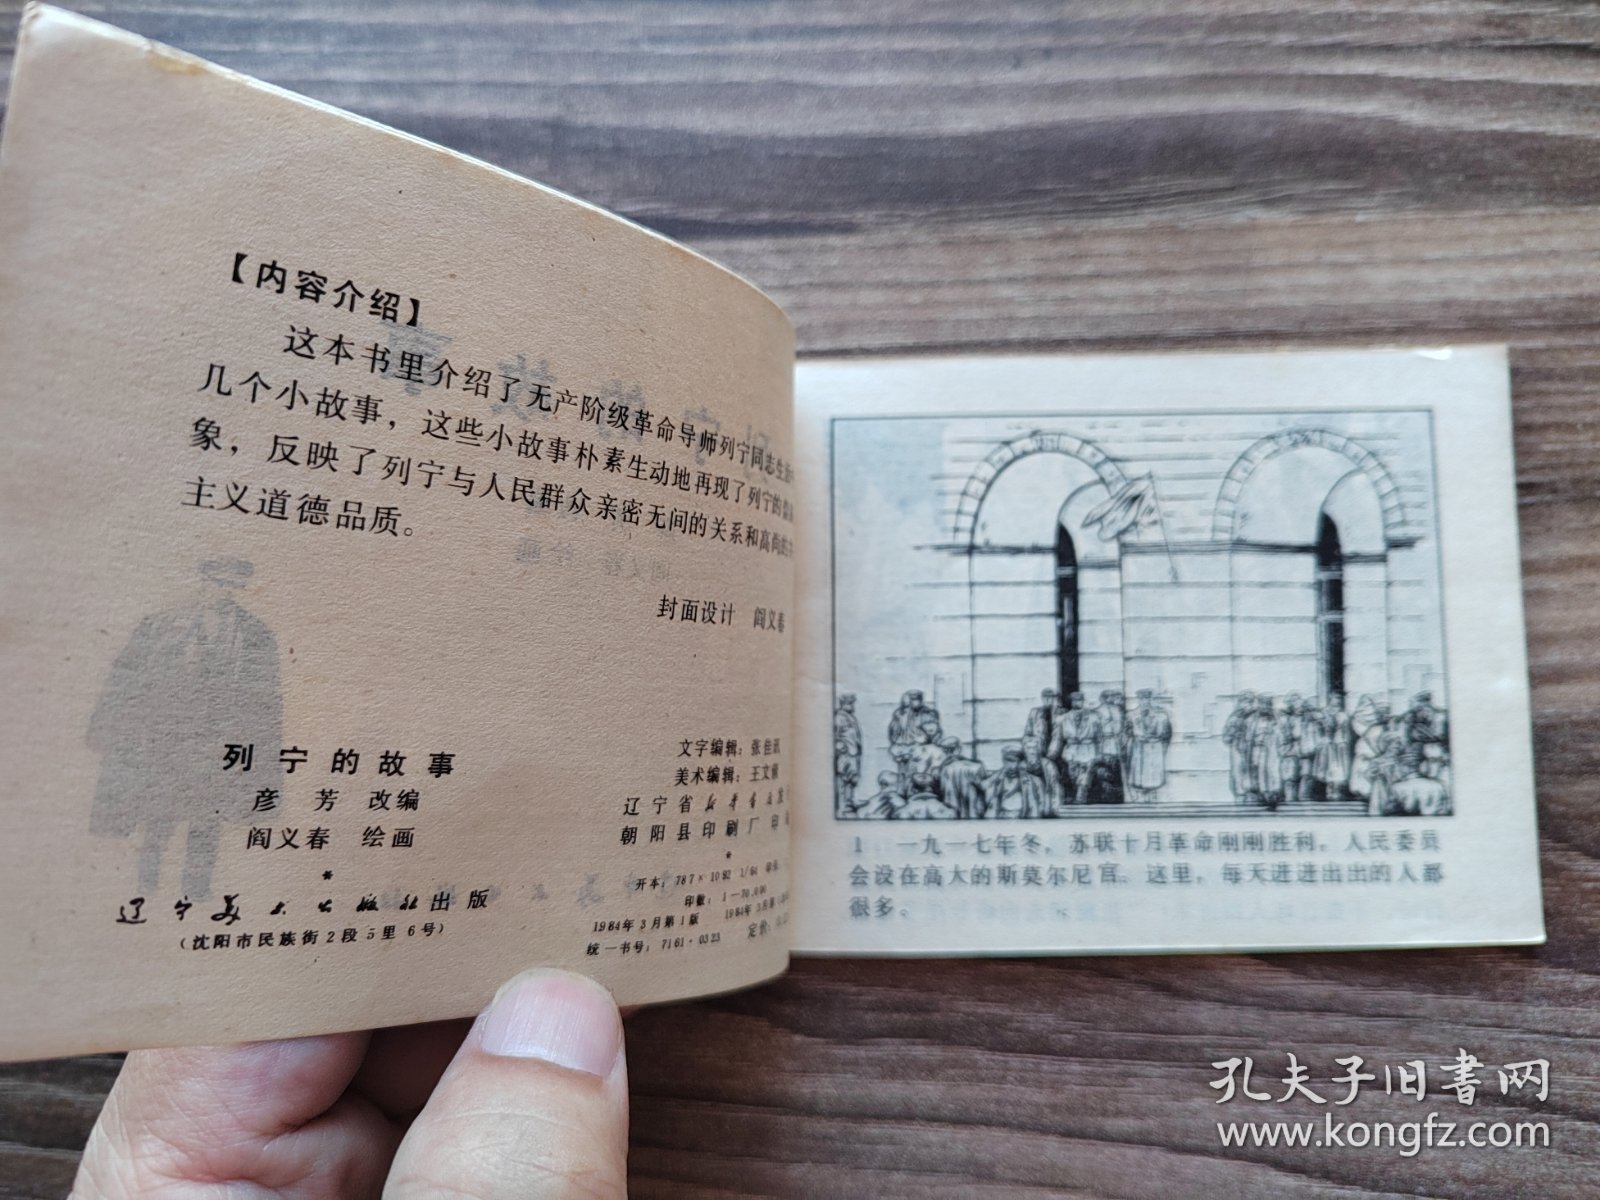 【内容介绍】
这本书里介绍了无产阶级革命导师列宁同志生活
几个小故事，这些小故事朴素生动地再现了列宁的
象，反映了列宁与人民群众亲密无间的关系和高尚的
主义道德品质。
封面设计 阎义春
列宁的故事
彦 芳 改编
阎义春 绘画
*
辽宁美术出版社出版
(沈阳市民族街2段5里6号)
文字编辑：张佳讯
美术编辑：王文
辽宁省新华书店发
朝阳县印刷厂印
*
开本：787×1092 1/64 印张
印数：1—70,000
1984年3月第1版 1984年3月第
统一书号：7161·0323 定价
1 一九一七年冬，苏联十月革命刚刚胜利。人民委员
会设在高大的斯莫尔尼宫。这里，每天进进出出的人都
很多。
孔夫子旧书网
www.kongfz.com